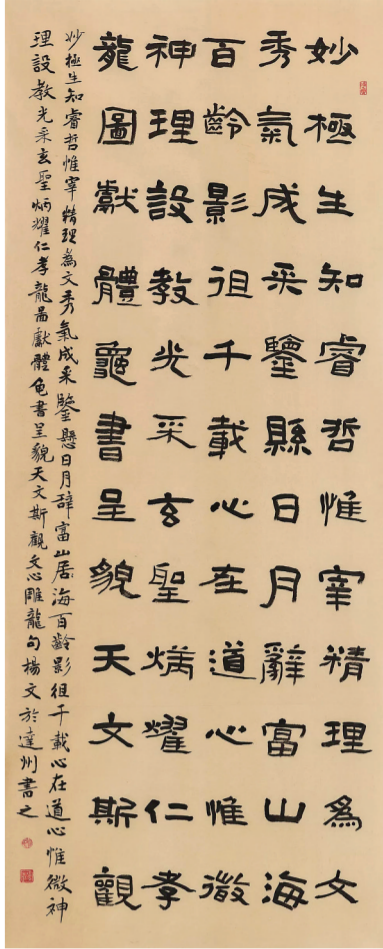 妙極生知睿哲惟宰精理為文
秀氣成采鑒縣日月辭富山海
百齡影徂千載心在道心惟微
神理設教光采玄聖炳耀仁孝
龍圖獻體龜書呈貌天文斯觀
妙極生知睿哲惟宰精理為文秀氣成采鑒懸日月辭富山居海百齡影徂千載心在道心惟微神
理設教光采玄聖炳耀仁孝龍啚獻體龟書呈貌天文斯觀文心雕龍句楊文於達州書之